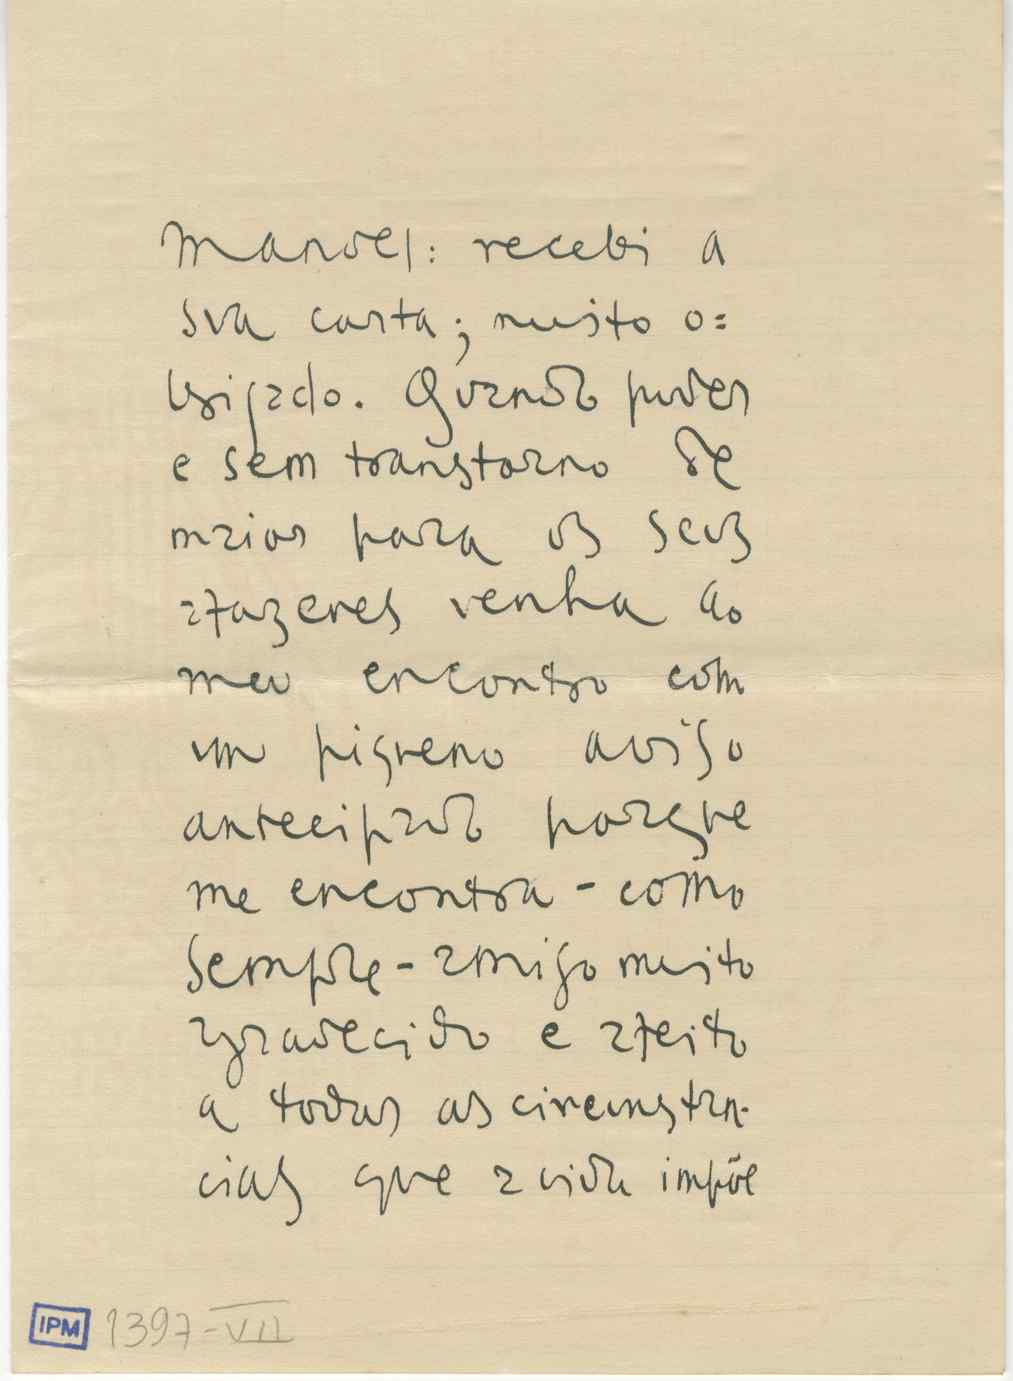 Manoel: recebi a
sua carta; muito o=
brigado. Quando puder
e sem transtorno de
maior para os seus
afazeres venha ao
meu encontro com
um piqueno aviso
antecipado porque
me encontra - como
sempre - amigo muito
agradecido e afeito
a todas as circunstan-
cias que a vida impõe
IPM 1397-VII